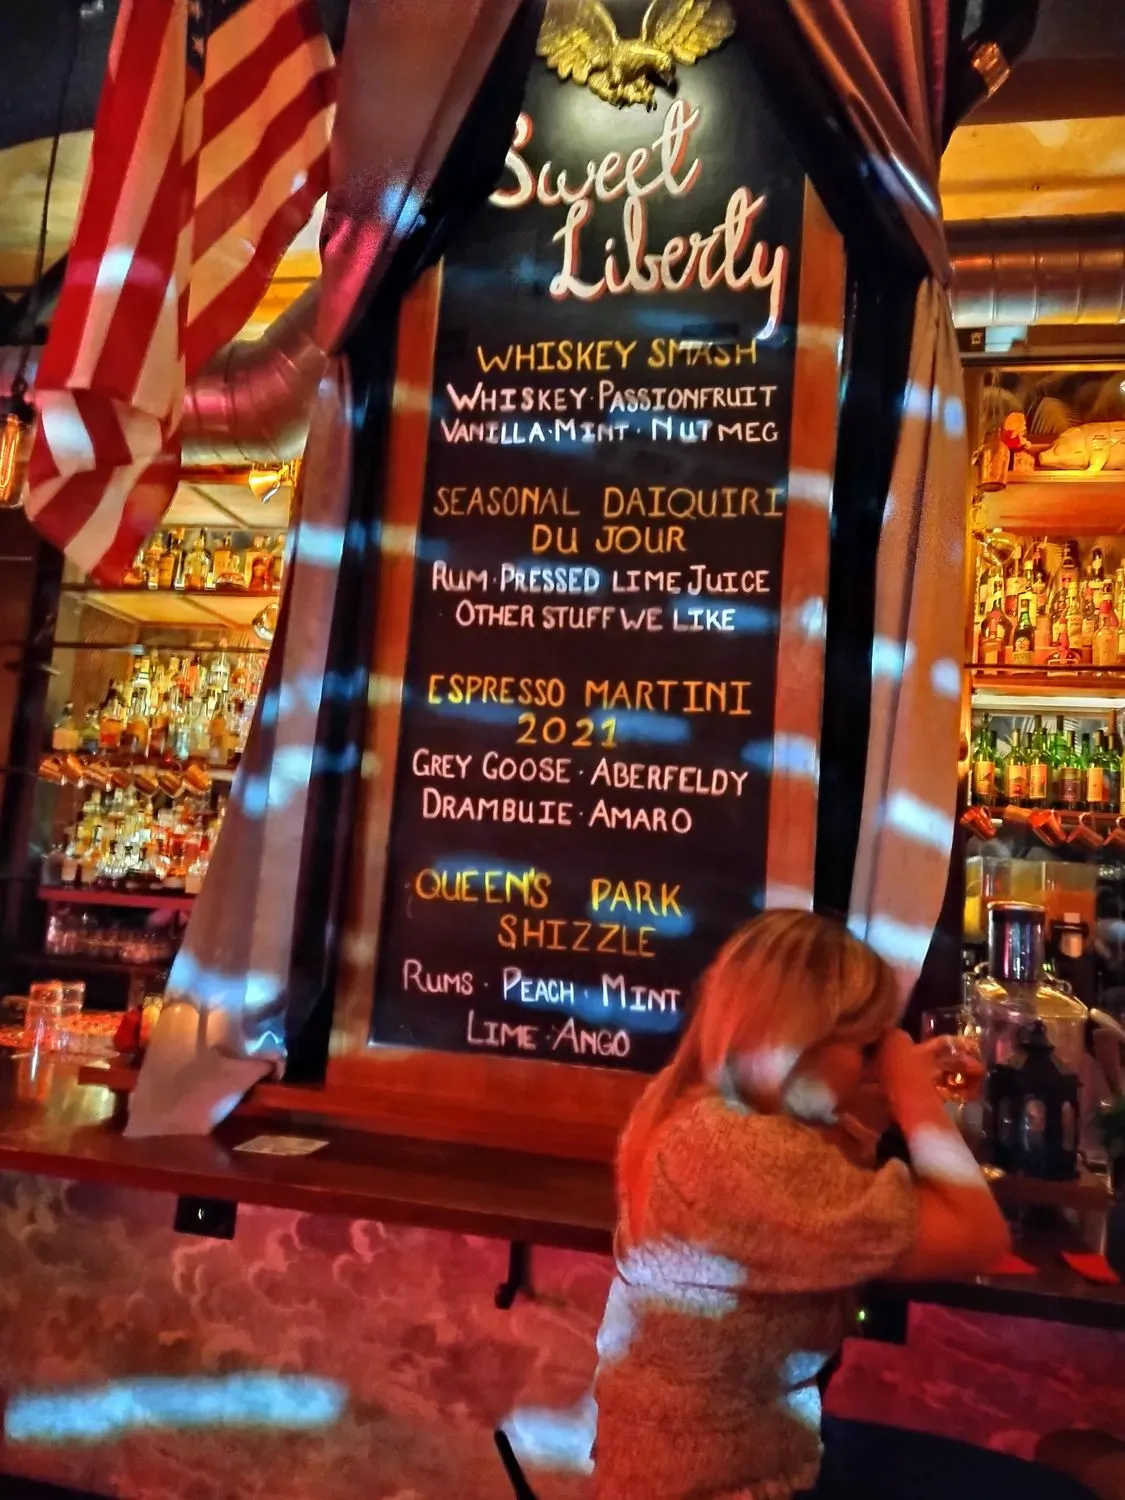 Sweet
Liberty
WHISKEY SMASH
WHISKEY · PASSIONFRUIT
VANILLA · MINT · NUTMEG
SEASONAL DAIQUIRI
DU JOUR
RUM · PRESSED LIME JUICE
· OTHER STUFF WE LIKE
ESPRESSO MARTINI
2021
GREY GOOSE · ABERFELDY
DRAMBUIE · AMARO
QUEEN'S PARK
SHIZZLE
RUMS · PEACH · MINT
LIME · ANGO